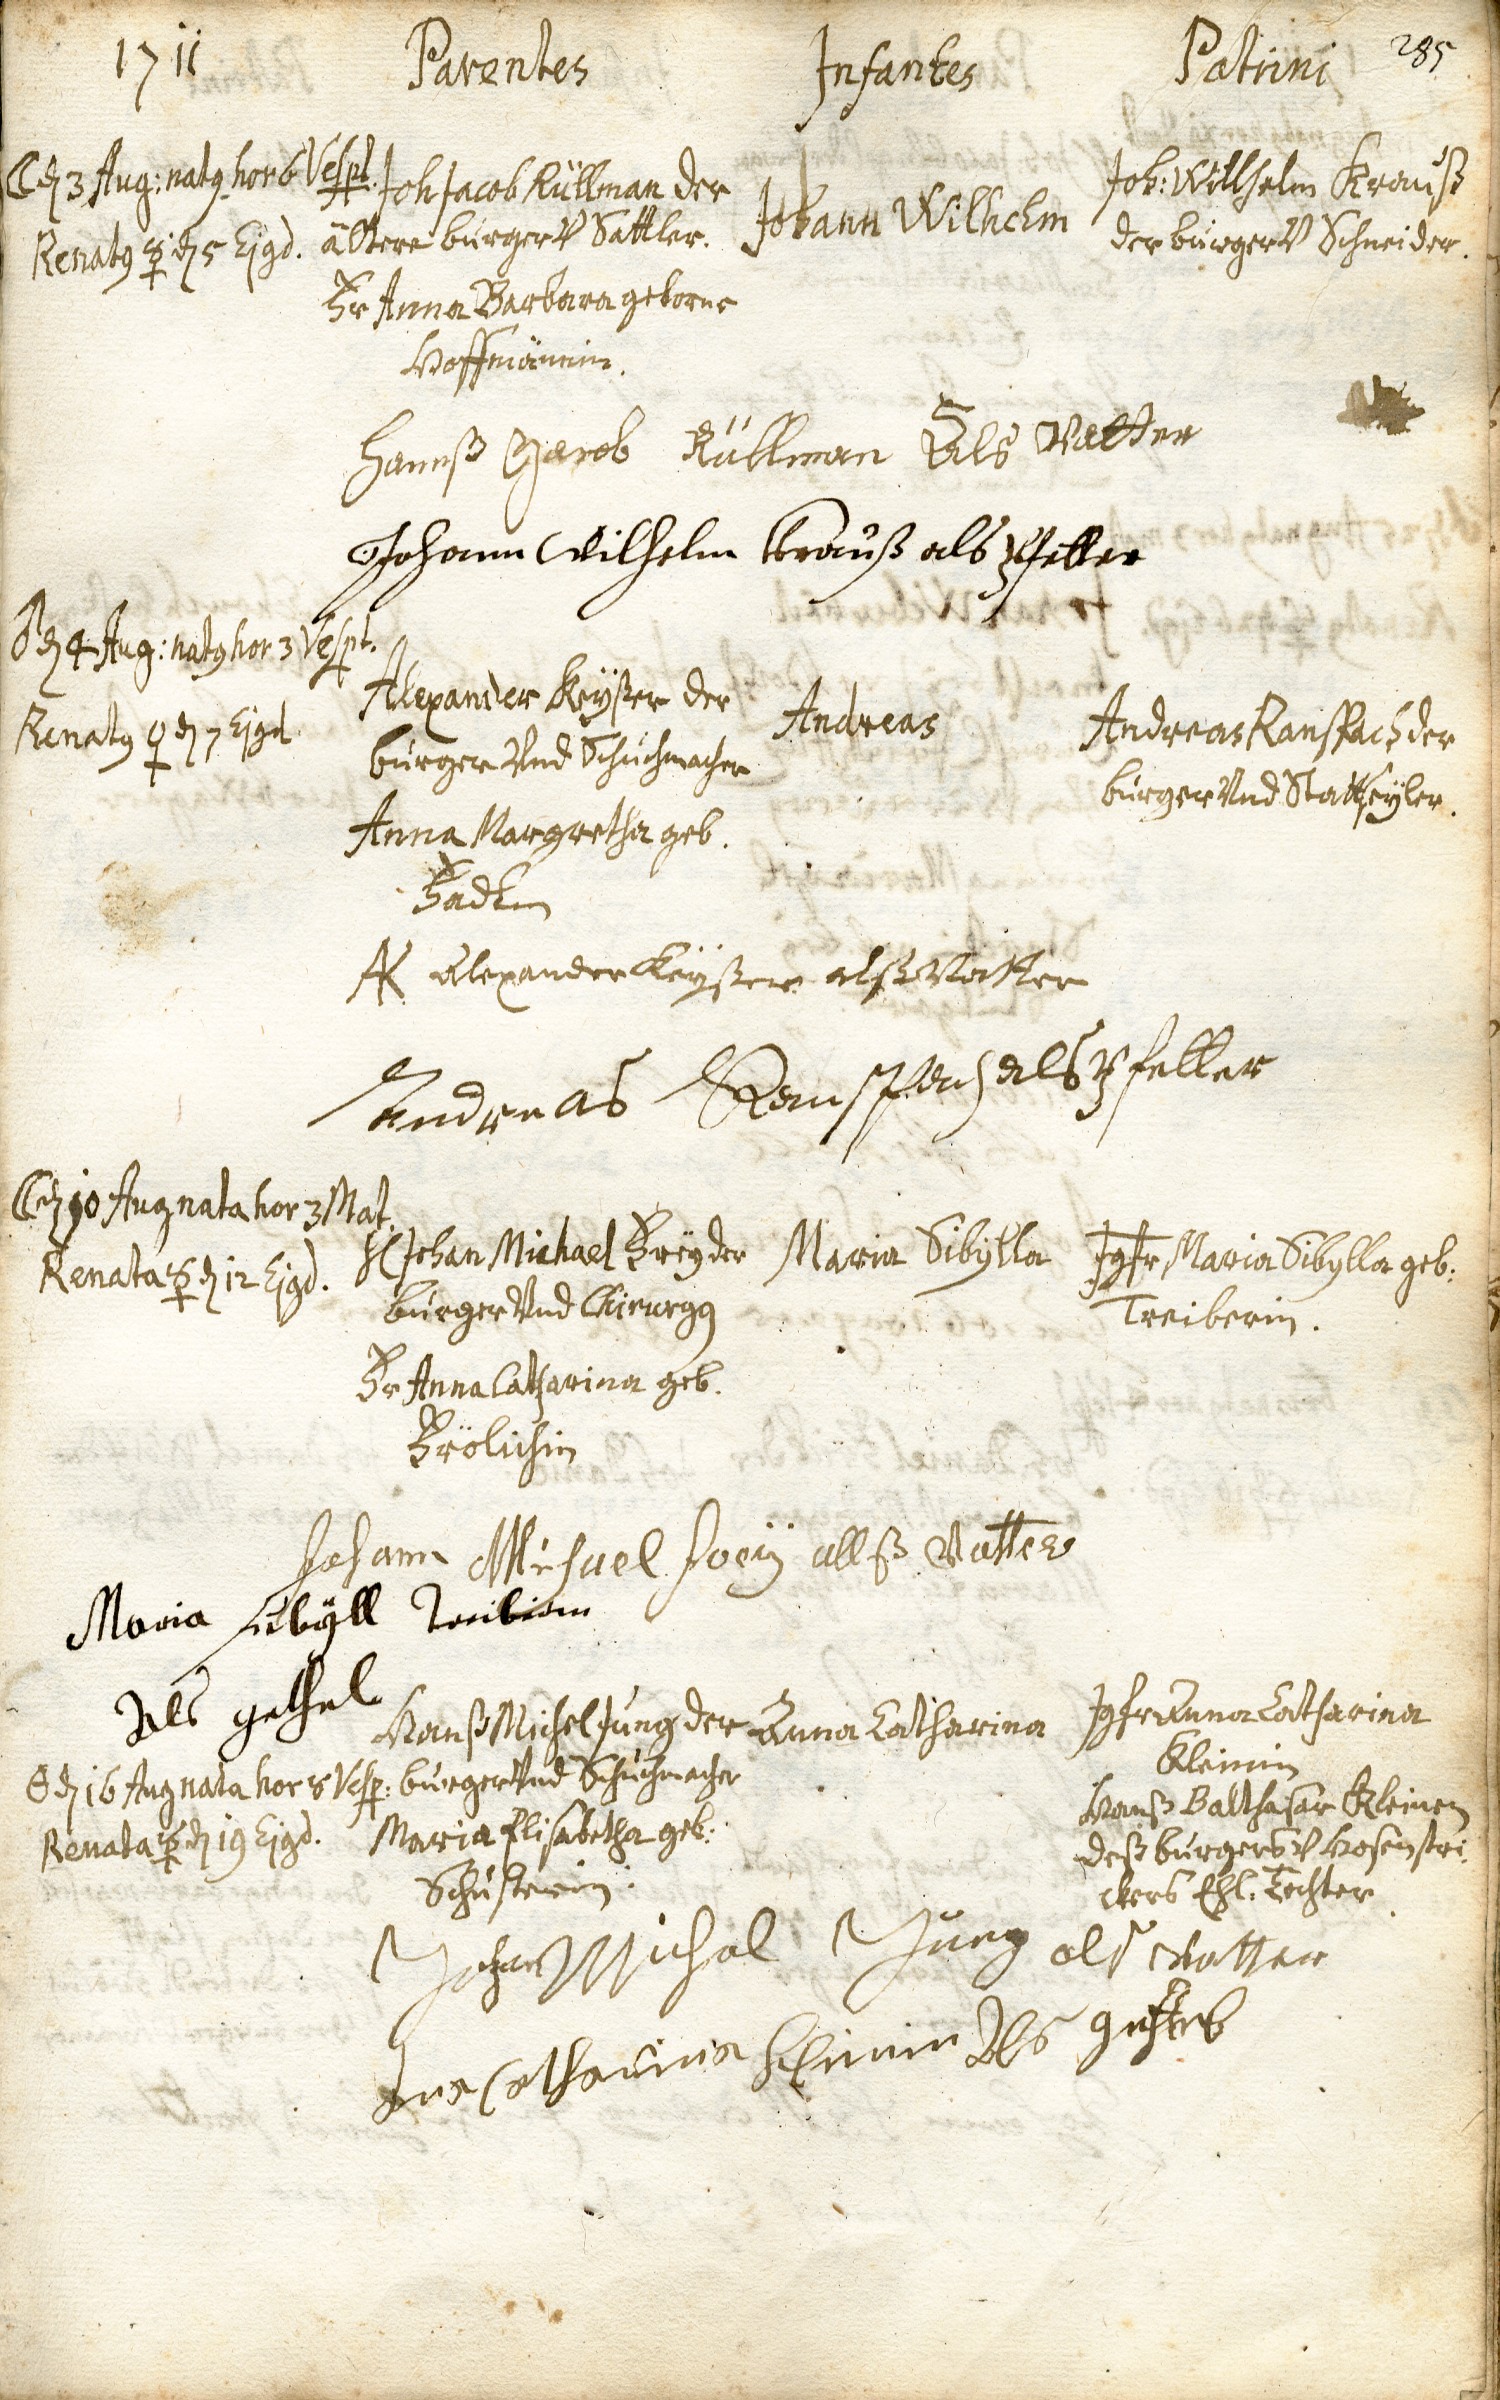 1711 Parentes Infantes Patrini 285
☾ d 3 Aug: natꝰ hor 6 Vesp.
Renatꝰ ☿ d 5 Ejsd.
H Joh Jacob Küllman der
ältere burger V Sattler.
Fr Anna Barbara geborne
Hoffmännin.
Johann Wilhelm
Joh: Willhelm Krauß
der burger V Schneider.
Hannß Jacob Küllman Als Vatter
Johann Wilhelm Krauß als Pfetter
♂ d 4 Aug: natꝰ hor 3 Vesp.
Renatꝰ ♀ d 7 Ejsd
Alexander Keyßer der
burger Vnd Schuchmacher
Anna Margretha geb.
Andreas
Andreas Ranspach der
burger Vnd Statseyler.
AK Alexander Keyßer alß Vatter
Andreas Ranspach als Pfetter
☾ d 10 Aug nata hor 3 Mat.
Renata ☿ d 12 Ejsd.
H Johan Michael Freyder
burger Vnd Chirurgꝰ
Fr Anna Catharina geb.
Frölichin
Maria Sibylla
Jgfr Maria Sibylla geb:
Treiberin.
Johann Michael Frey allß Vatter
Maria Sibyll Treiberin
Als gethel
Hanß Michel Jung der
burger Vnd Schuchmacher
Maria Elisabetha geb:
Schusterin.
Anna Catharina
Jgfr Anna Catharina
Kleinin
Hanß Balthasar Kleinen
deß burgers V Hosenstri-
ckers Ehl. Tochter
☉ d 16 Aug nata hor 8 Vesp:
Renata ☿ d 19 Ejsd.
Johan Michel Jung als Vatter
Ana Catharina Kleinin Als